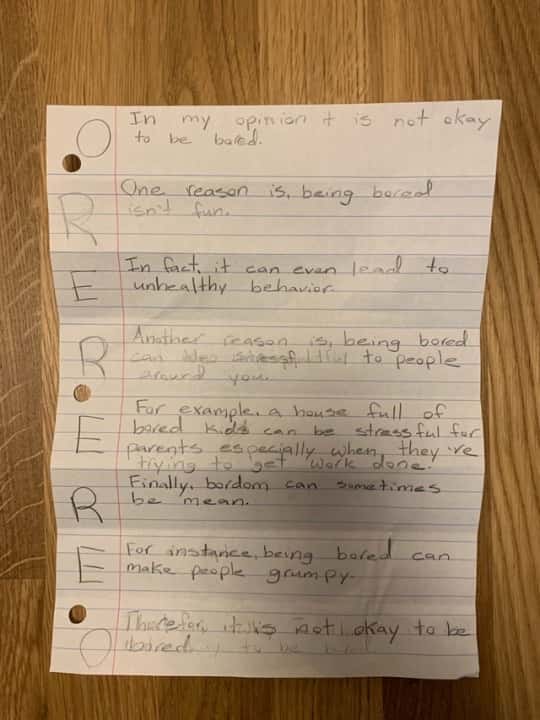 O In my opinion it is not okay
to be bored.
R One reason is, being bored
isn't fun.
E In fact, it can even lead to
unhealthy behavior.
R Another reason is, being bored
can to people
around you.
E For example, a house full of
bored kids can be stressful for
parents especially when, they've
trying to get work done.
R Finally, bordom can sometimes
be mean.
E For instance, being bored can
make people grumpy.
O Therefor, it is not okay to be
bored.